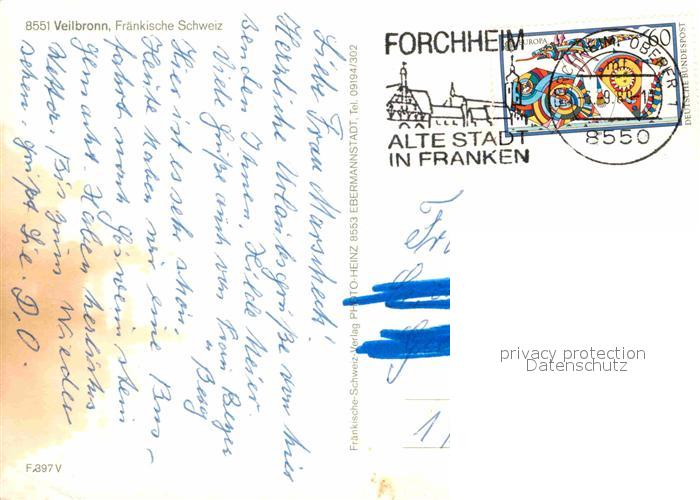 8551 Veilbronn, Fränkische Schweiz
Liebe Frau
Herzliche Urlaubsgrüße von hier
senden Ihnen. Hilde Meier.
Viele Grüße auch von Frau Beyer
" Berg
Hier ist es sehr schön.
Heute haben wir eine Bus-
fahrt nach
gemacht. Haben herrliches
Wetter. Bis zum Wieder
sehen, grüßt Sie. D. O.
F.397 V
Fränkische-Schweiz-Verlag PHOTO-HEINZ 8553 EBERMANNSTADT, Tel. 09194/302
FORCHHEIM
ALTE STADT
IN FRANKEN
EUROPA
60
DEUTSCHE BUNDESPOST
FORCHHEIM, OBERFR
8550
privacy protection
Datenschutz